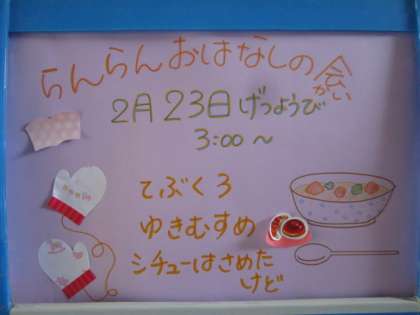 らんらんおはなしの会
かい
2月23日げつようび
3:00〜
てぶくろ
ゆきむすめ
シチューはさめた
けど